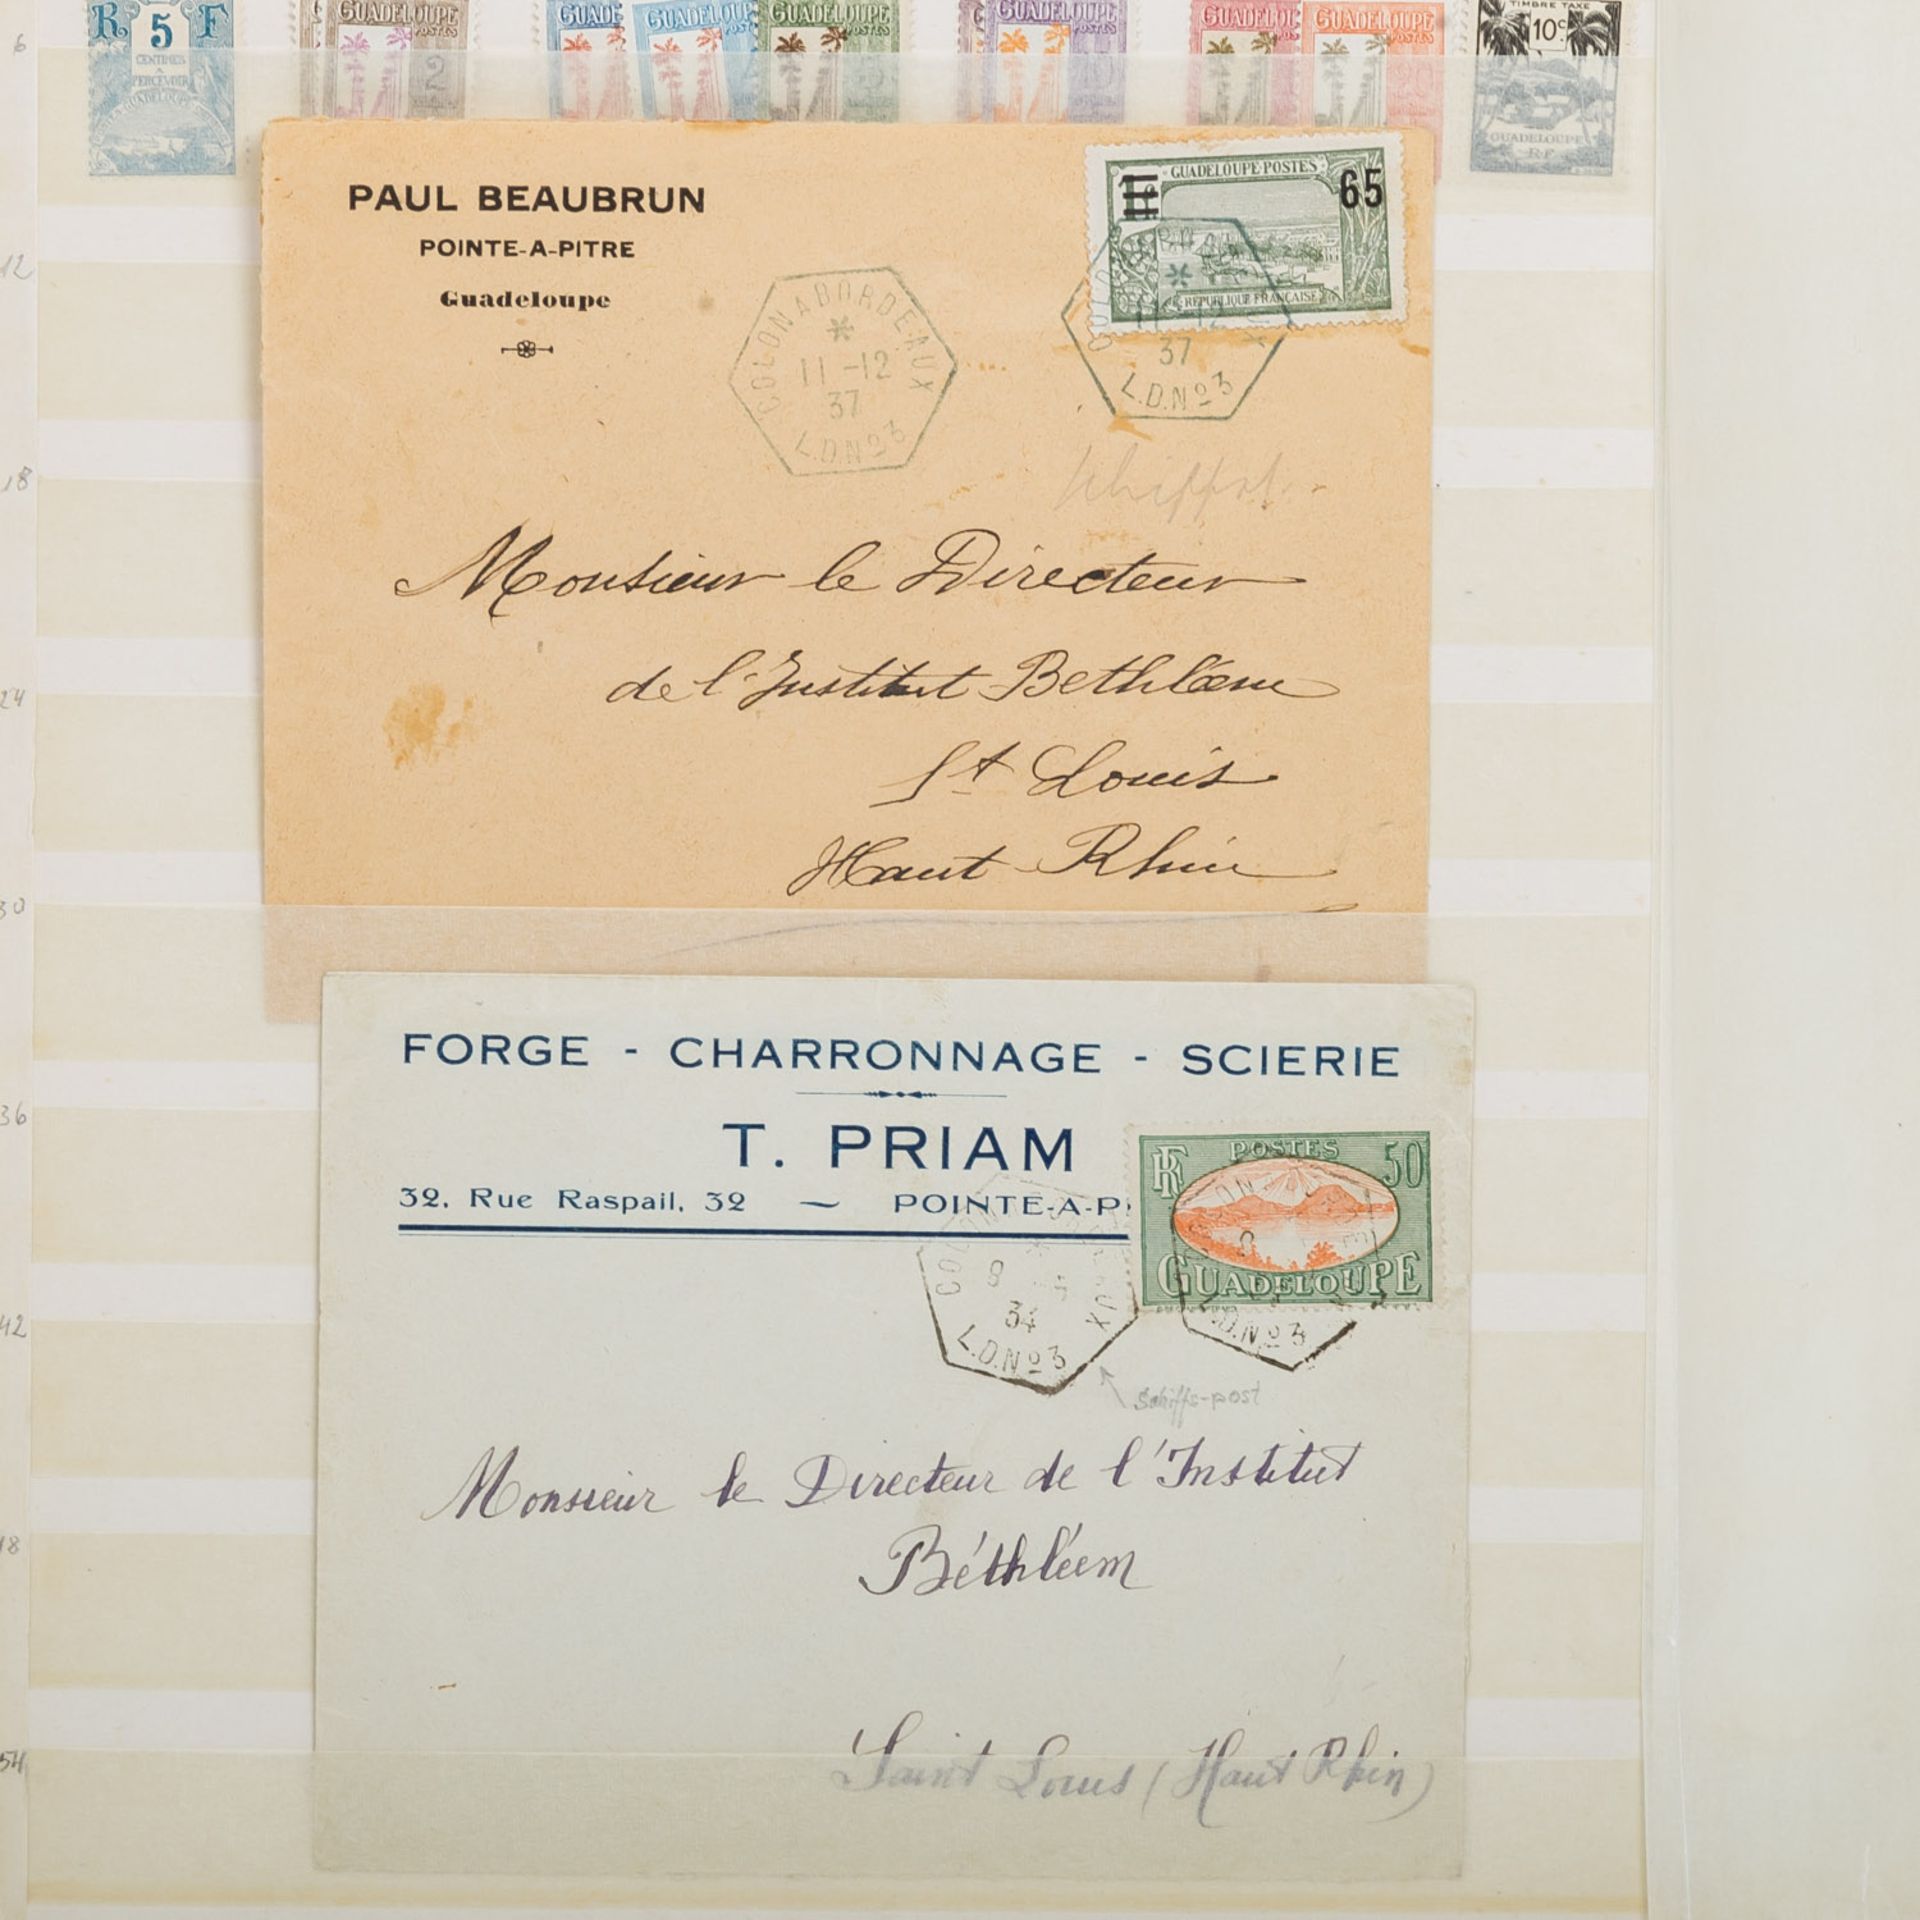 6
R 5 F
CENTIMES
À
PERCEVOIR
GUADELOUPE
GUADELOUPE
POSTES
2
GUADE
GUADELOUP
GUADELOUPE
POSTES
GUADELOUPE
POSTES
GUADELOU
GUADELOUPE
POSTES
TIMBRE TAXE
10c
GUADELOUPE
R.F.
12
18
24
30
36
42
48
54
PAUL BEAUBRUN
POINTE-A-PITRE
Guadeloupe
GUADELOUPE·POSTES
65
REPUBLIQUE FRANÇAISE
COLON A BORDEAUX
11-12
37
L.D.No3
11-12
37
L.D.No3
Monsieur le Directeur
de l'Institut Bethléem
St Louis
Haut Rhin
FORGE - CHARRONNAGE - SCIERIE
T. PRIAM
32, Rue Raspail, 32 — POINTE-A-P
RF POSTES 50
GUADELOUPE
8
34
L.D.No3
L.D.No3
Schiffs-post
Monsieur le Directeur de l'Institut
Béthléem
Saint Louis (Haut Rhin)